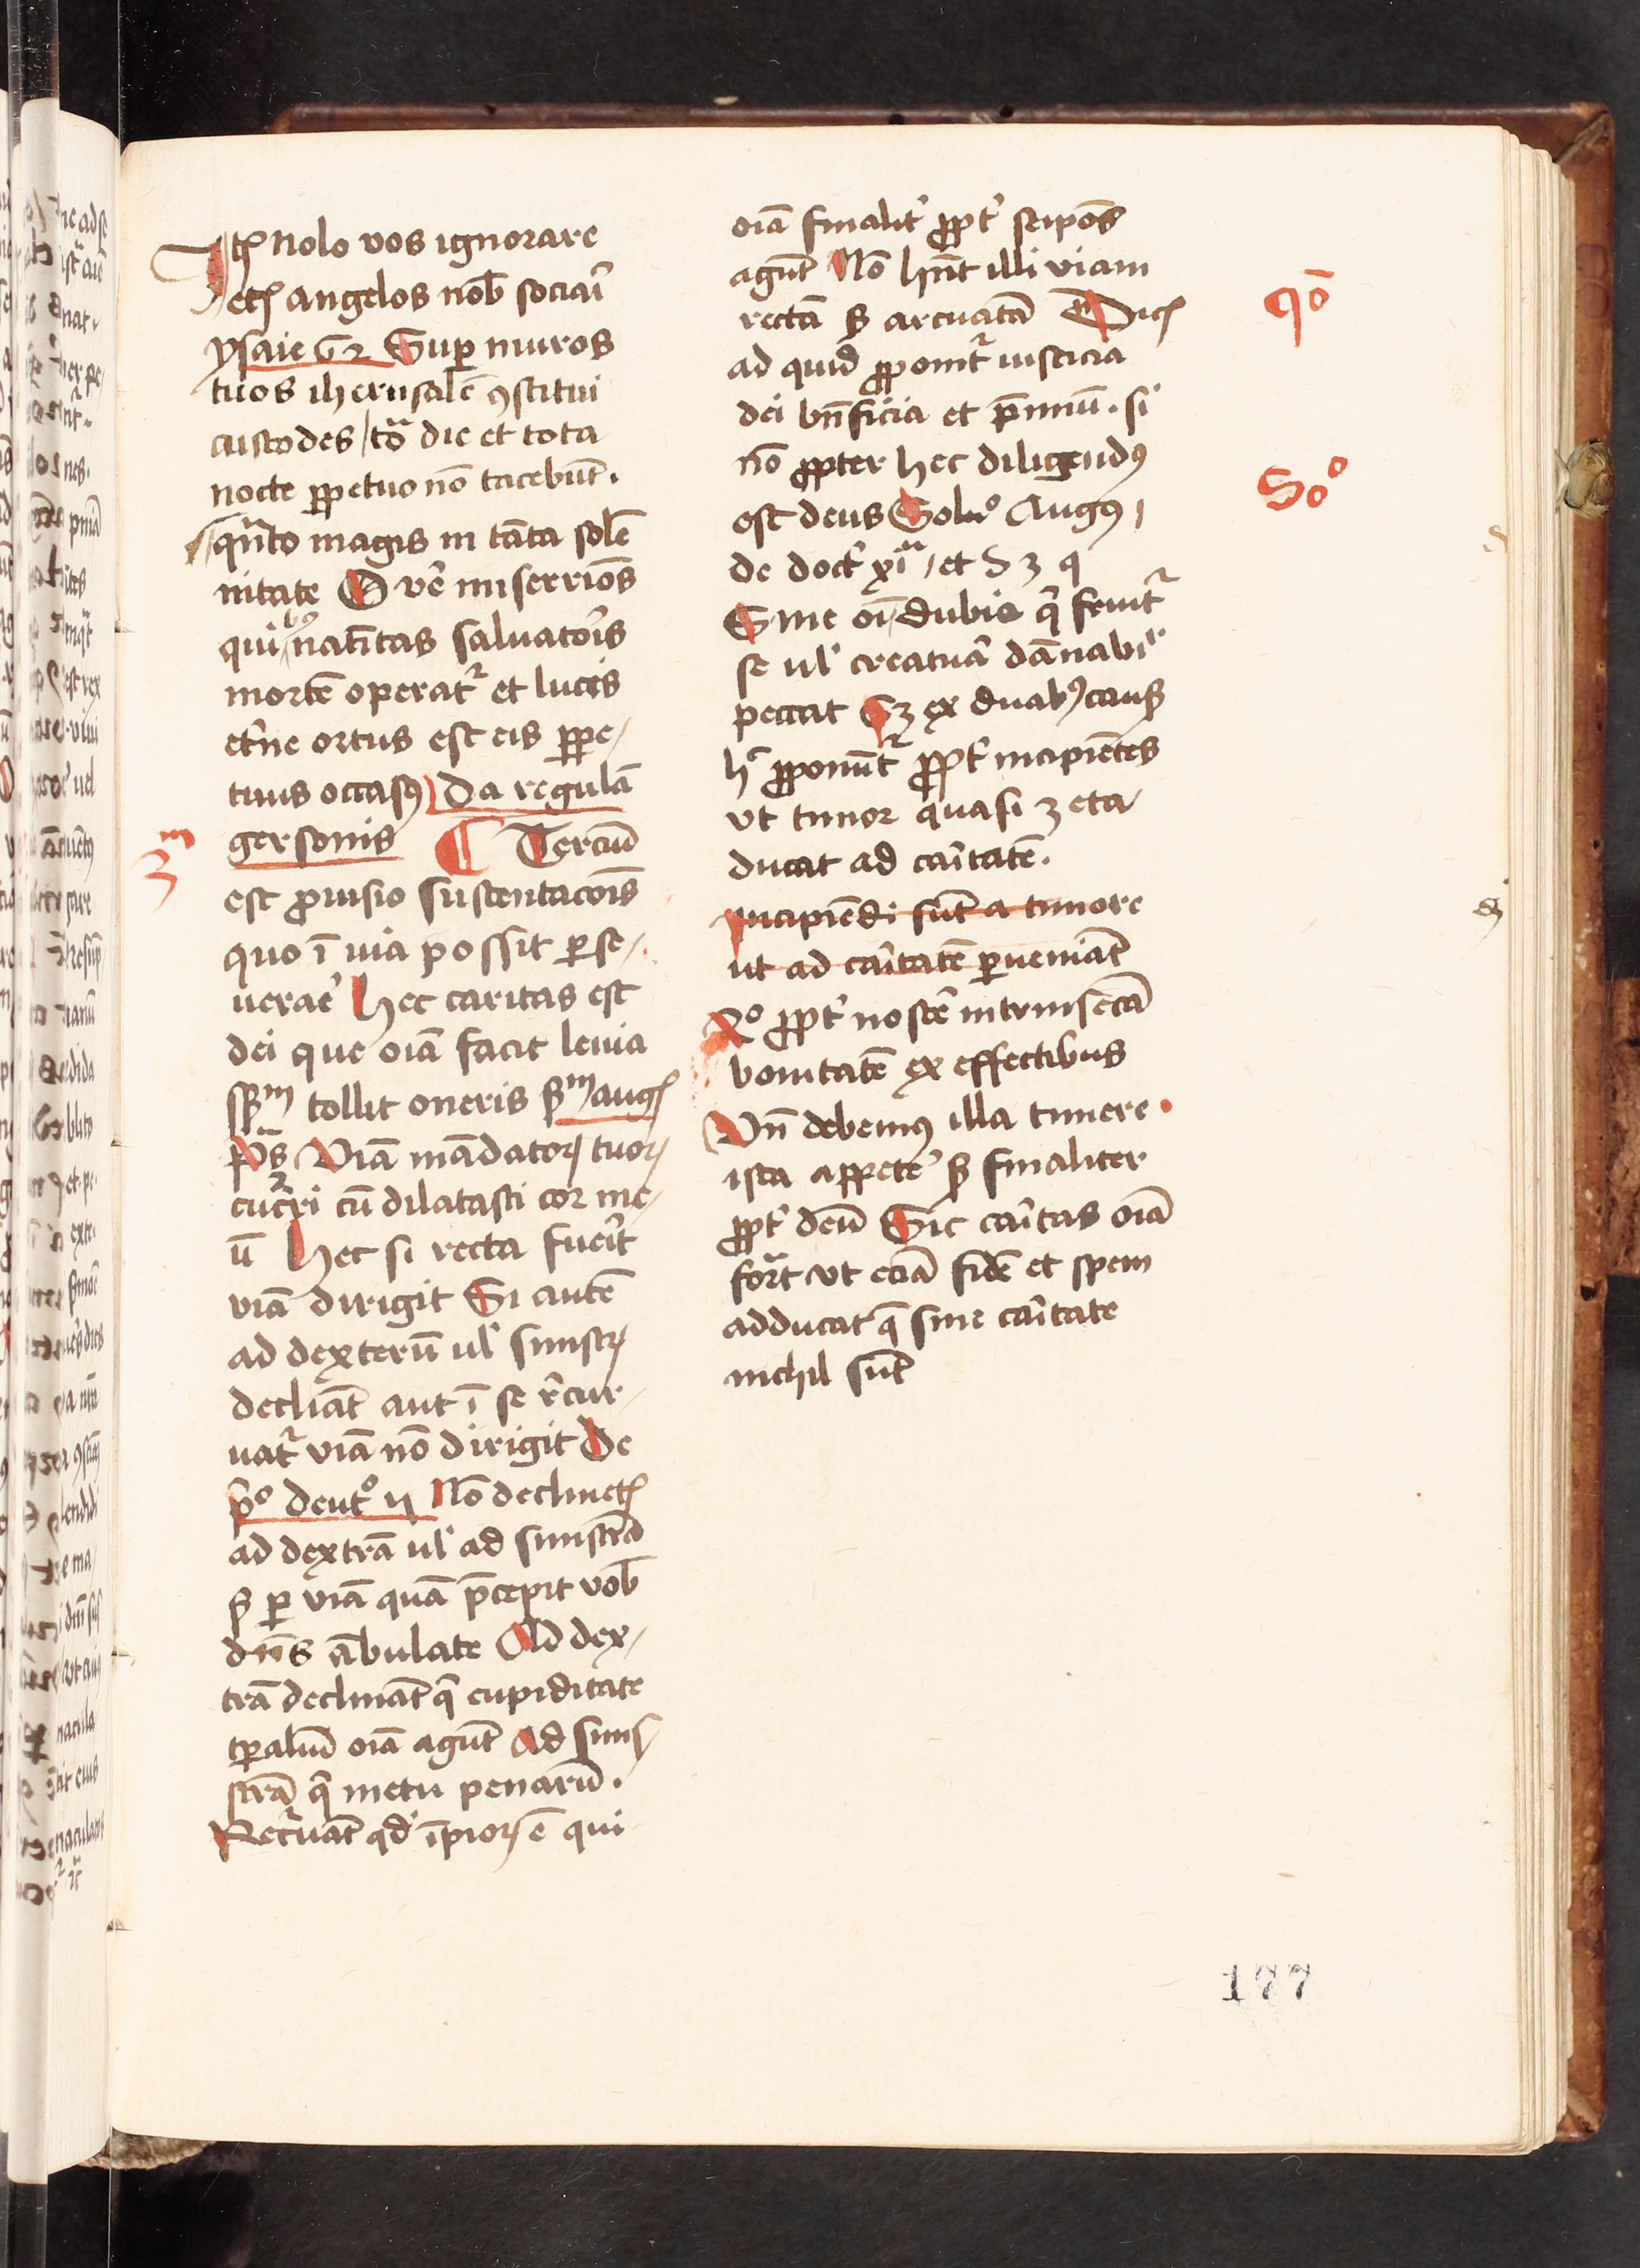 Itē nolo vos ignorare
etē angelos nob̄ sociar̄i
ysaie 62 Sup muros
tuos iherusalē ꝯstitui
custodes / tōͣ die et tota
nocte ꝑpetuo nō tacebūt.
qͣnto magis in tāta solē
nitate O vē miserrīos
quibꝰ natītas saluator̄is
mortē operatᷣ et lucis
et̄ne ortus est eis ꝑpe/
tuus occasꝰ da regulā
gersonis ¶ Terciū
3ᵐ
est ꝓuisio sustentacōis
quo ī uia possit ꝑse/
uerar̄e hec caritas est
dei que oīa facit leuia
tollit oneris augꝰ
p̄s Viā mādatoꝝ tuoꝝ
cucᷣri cū dilatasti cor me/
ū hec si recta fuer̄it
viā dirigit Si autē
ad dexterū ul̓ sinistꝝ
decliāt aut ī se r̄cur/
uatᷣ viā nō dirigit De
p̄º deutº Nō declinetꝭ
ad dextrā ul̓ ad sinistrā
ꝑ viā quā p̄cepit vob̄
dn̄s ābulate Ad dex/
trā declināt q̄ cupiditate
tꝑaliū oīa agūt Ad sinis/
strā q̄ metu penarū.
Recᷣuāt qd̓ īpioꝝ ē qui
oīa finalit̓ ꝓpt̓ seipōs
agūt Nō hn̄t illi viam
rectā s̄ arcuatā Dicꝭ
qō
ad quid ꝓponitᷣ iusticia
dei bn̄ficia et p̄miū. si
nō ꝓpter hec diligendꝰ
est deus Soluº Augꝰ /
Soº
de doct̓ xiͣ / et
Sine oī dubio q̄ fruitᷣ
se ul̓ creatur̄a dānabil̓r
peccat Sꝫ ex duabꝰ caus̄
h̄ ꝓponūtᷣ ꝓpt̓ incipiētes
vt timor quasi
ducat ad car̄itatē.
incipiēdi sūt a timore
ut ad car̄itatē ꝑueniāt
2º ꝓpt̓ noscē intrinsecā
bonitatē ex effectibus
Vn̄ debemꝰ illa timere
ista appetē s̄ finaliter
ꝓpt̓ deū Sic car̄itas oīa
forᷣt vt eciā fidē et spem
adducat q̄ sine car̄itate
nichil sūt
177